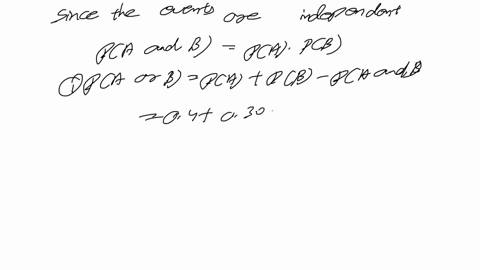 Since the events are independent
P(A and B) = P(A). P(B)
① P(A or B) = P(A) + P(B) - P(A and B
= 0.4 + 0.30